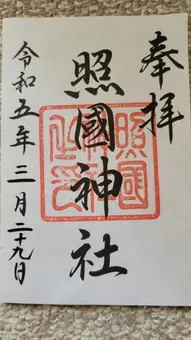 奉拝
照國神社
令和五年三月二十九日
照國神社之印